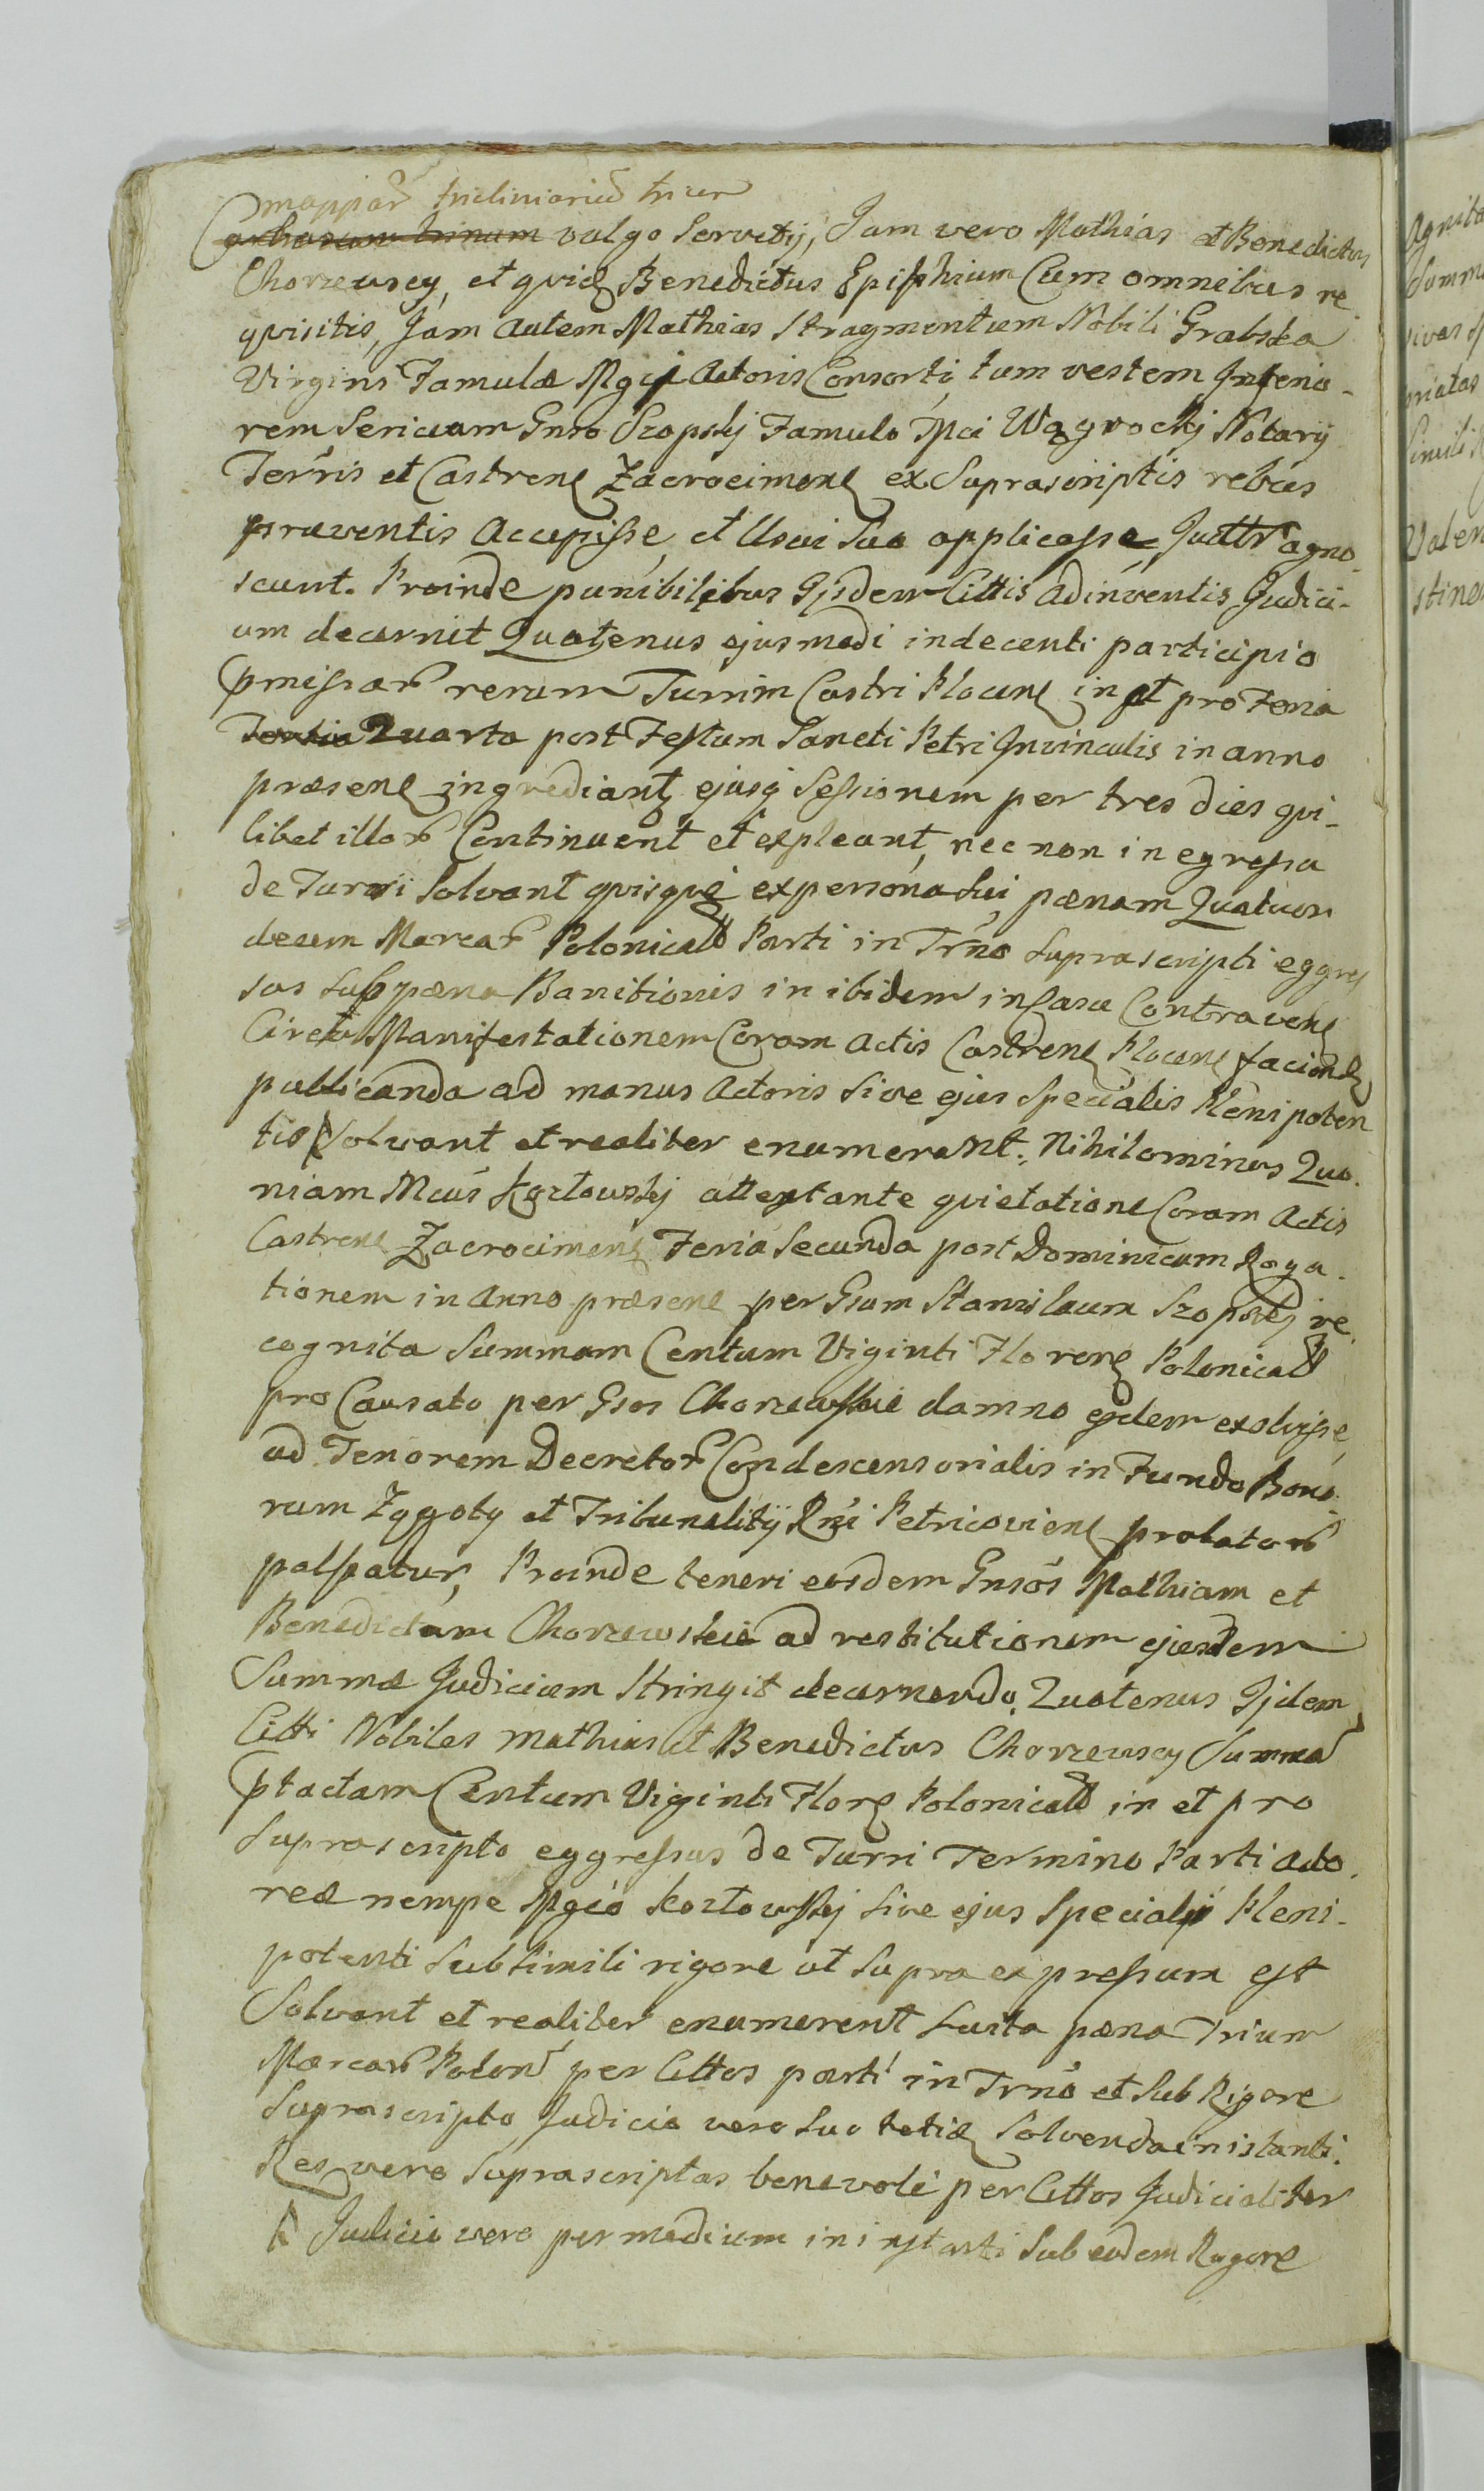 mappar tricliniariu trium
Carbasum trinum vulgo Servety, Jam vero Mathias et Benedictus
Chorzewscy, et quid Benedictus Ephiphium Cum omnibus re
quisitis, Jam autem Mathias Stragmentum Nobili Grabska
Virgini Famulæ Mgci Actoris Consorti, tum vestem Inferio-
rem Sericeam Gnso Szopskj Famulo Mci Wągrockj Notarij
Terris et Castrens Zacrocimens ex Suprascriptis rebus
præventis Accepisse, et Usui Suo applicasse Juttr agno-
scunt. Proinde punibilibus Ijsdem Cittis adinventis Judici-
um decernit Quatenus ejusmodi indecenti participio
pmissar rerum Turrim Castri Plocens in et pro Feria
Tertia Quarta post Festum Sancti Petri Invinculis in anno
præsens ingrediant ejusq Sessionem per tres dies qui-
libet illor Continuent et expleant, nec non in egressu
de Turri Solvant quisque ex persona sui pænam Quatuor
decem Marcar Polonicall Parti in Trno suprascripti eggres
sus sub pæna Banitionis in ibidem in Casu Contravens
Circa Manifestationem Coram actis Castrens Plocens faciend
publicanda ad manus Actoris Sive ejus Specialis Plenipoten
tis Solvant et realiter enumerent. Nihilominus Quo-
niam Mcus Kozłowskj attestante quietatione Coram Actis
Castrens Zacrocimens Feria Secunda post Dominicam Roga-
tionem in Anno præsens per Gsum Stanislaum Szopskj re
cognita Summam Centum Viginti Florens Polonicall
pro Causato per Gsos Chorzewskie damno ejdem exolvisse
ad Tenorem Decretor Condescensorialis in Fundo Bono
rum Zygoty et Tribunalitij Rni Petricoviens prolator
palpatur, Proinde teneri eosdem Gnsos Mathiam et
Benedictum Chorzewskie ad restitutionem ejusdem
Summæ Judicium Stringit decernendo, Quatenus Ijdem
Citti Nobiles Mathias et Benedictus Chorzewscy Summa
ptactam Centum Viginti Flors Polonicall in et pro
Suprascripto eggressus de Turri Termino Parti Acto-
reæ nempe Mgco Kozłowskj Sive ejus Speciali Pleni-
potenti Sub Simili rigore ut Supra expressum est
Solvant et realiter enumerent Luita pæna Trium
Marcar Polon per Cittos parti in Trno et Sub Rigore
Suprascripto Judicio vero Suo totid Solvenda in istanti.
Res vero Suprascriptas benevole per Cittos Judicialiter
Judicio vero per medium in instanti Sub eodem Rigore
Agnita
Summ